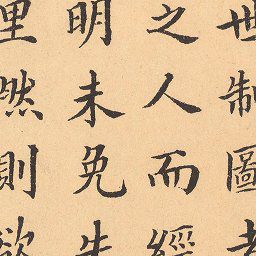 世制圖者
之人而經
明未免失
里然則欲